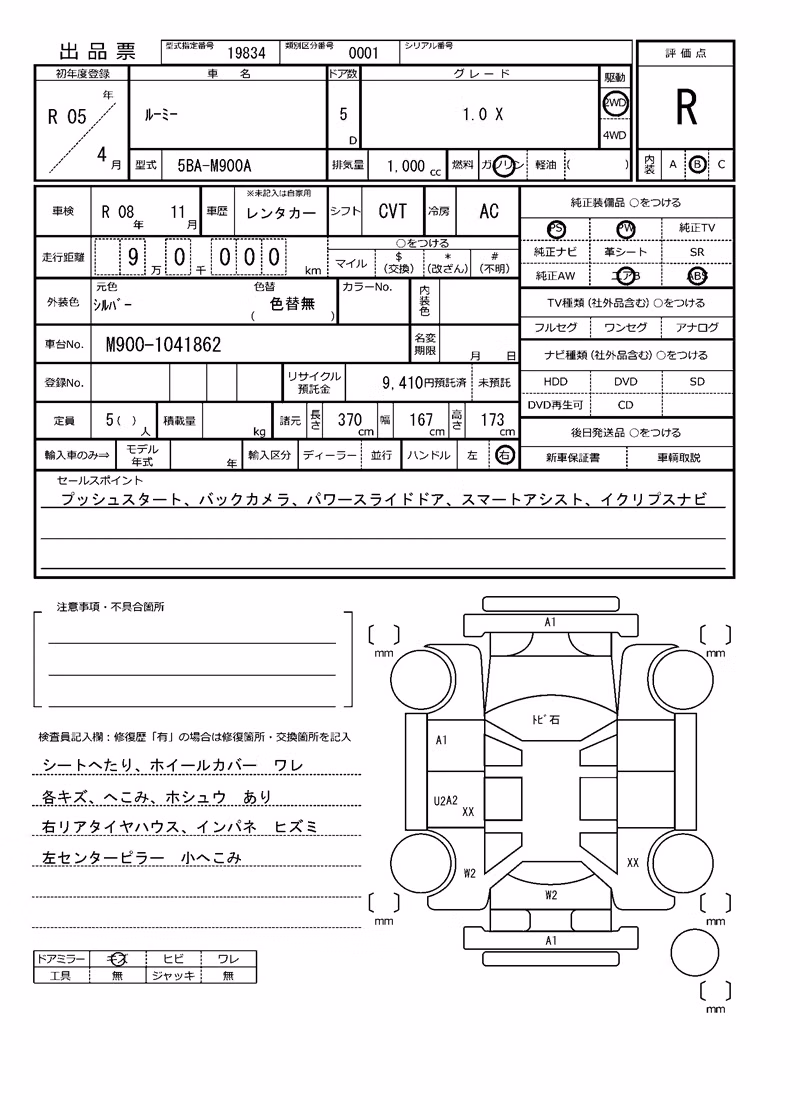 出品票
型式指定番号 19834 類別区分番号 0001 シリアル番号
評価点
初年度登録 車名 ドア数 グレード 駆動
R 05 年 4 月
ルーミー
5 D
1.0 X
2WD
4WD
R
型式 5BA-M900A 排気量 1,000 cc 燃料 ガソリン 軽油 ( )
内装 A B C
車検 R 08 年 11 月 車歴 ※未記入は自家用 レンタカー シフト CVT 冷房 AC
走行距離 9 万 0 千 0 0 0 km
○をつける
マイル $(交換) *(改ざん) #(不明)
外装色 元色 シルバー 色替 ( 色替無 ) カラーNo. 内装色
車台No. M900-1041862 名変期限 月 日
登録No. リサイクル預託金 9,410円預託済 未預託
定員 5( )人 積載量 kg 諸元 長さ 370 cm 幅 167 cm 高さ 173 cm
輸入車のみ⇒ モデル年式 年 輸入区分 ディーラー 並行 ハンドル 左 右
純正装備品 ○をつける
PS PW 純正TV
純正ナビ 革シート SR
純正AW エアB ABS
TV種類 (社外品含む) ○をつける
フルセグ ワンセグ アナログ
ナビ種類 (社外品含む) ○をつける
HDD DVD SD
DVD再生可 CD
後日発送品 ○をつける
新車保証書 車輌取説
セールスポイント
プッシュスタート、バックカメラ、パワースライドドア、スマートアシスト、イクリプスナビ
注意事項・不具合箇所
検査員記入欄：修復歴「有」の場合は修復箇所・交換箇所を記入
シートへたり、ホイールカバー ワレ
各キズ、へこみ、ホシュウ あり
右リアタイヤハウス、インパネ ヒズミ
左センターピラー 小へこみ
ドアミラー キズ ヒビ ワレ
工具 無 ジャッキ 無
A1
mm
mm
トビ石
A1
U2A2
XX
W2
XX
W2
mm
mm
A1
mm